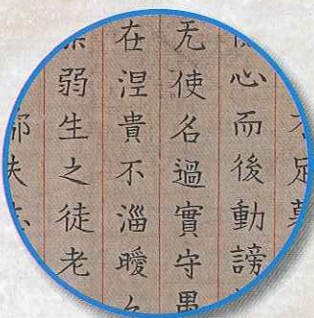 不足慕
心而後動謗
无使名過實守
在涅貴不淄曖
弱生之徒老
夫